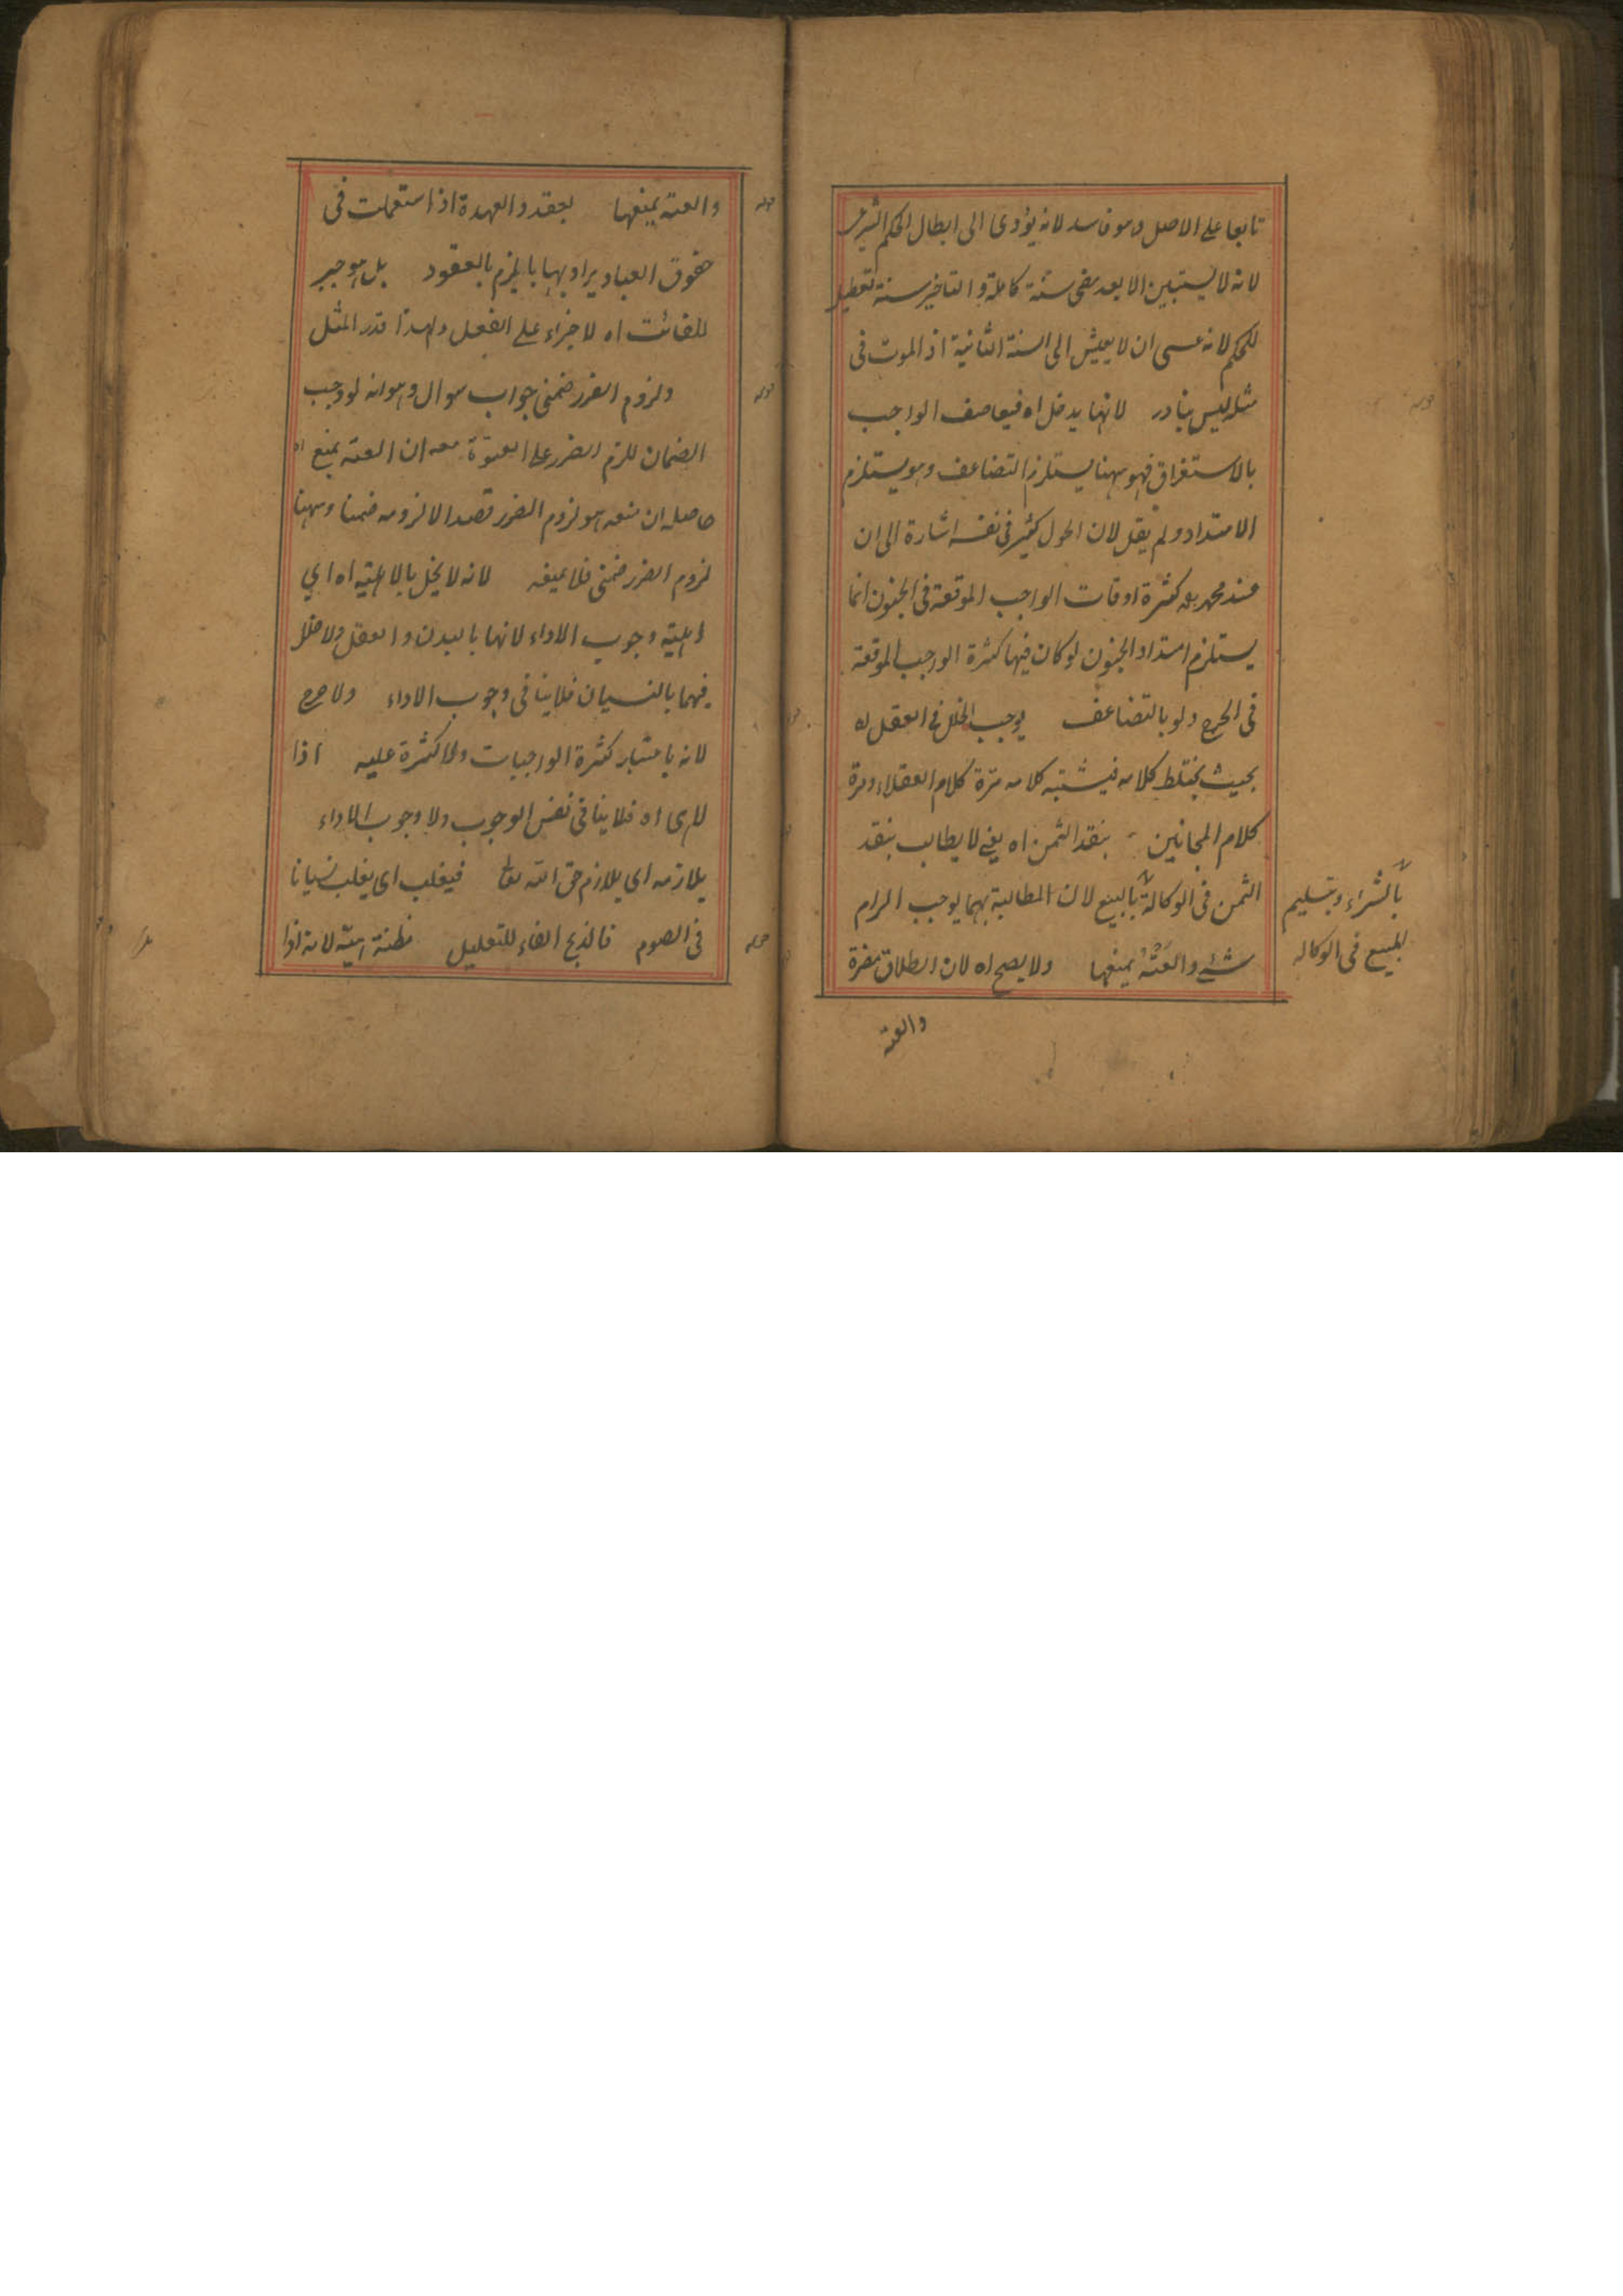 تابعا على الاصل وهو فاسد لانه يؤدى الى ابطال الحكم الشرعى
لانه لا يستبين الا بعد مضى سنة كاملة والتاخير سنة تعطيل
للحكم لانه عسى ان لا يعيش الى السنة الثانية اذ الموت فى
مثله ليس بنادر لانها يدخل اه فيعاصف الواجب
بالاستغراق فهو ههنا يستلزم التضاعف وهو يستلزم
الامتداد ولم يقل لان الحول كثير فى نفسه اشارة الى ان
عند محمد كثرة اوقات الواجب الموقعة فى الجنون انما
يستلزم امتداد الجنون لو كان فيها كثرة الواجب الموقعة
فى الحرج ولو بالتضاعف يوجب الخلل فى العقل اه
بحيث يختلط كلامه فيشتبه كلامه مرة كلام العقلاء ومرة
كلام المجانين بنقد الثمن اه يعنى لا يطالب بنقد
الثمن فى الوكالة بالبيع لان المطالبة بهما يوجب الزام
بالشراء وبتسليم
المبيع فى الوكالة
شئ والعته يمنعها ولا يصح اه لان الطلاق مضرة
والعته
والعته يمنعها بعقد والعهدة اذا استعملت فى
قوله
حقوق العباد يراد بها ما يلزم بالعقود بل هو جبر
للفائت اه لا جزاء على الفعل ولهذا قدر المثل
ولزوم الضرر ضمنى جواب سوال وهو انه لو وجب
قوله
الضمان للزم الضرر على المعتوه مع ان العته يمنع اه
حاصله ان منعه هو لزوم الضرر قصدا لا لزومه ضمنا وههنا
لزوم الضرر ضمنى فلا يمنعه لانه لا يخل بالاهلية اه اي
اهلية وجوب الاداء لانها بالبدن والعقل ولا خلل
فيهما بالنسيان فلا ينافى وجوب الاداء ولا حرج
لانه باعتبار كثرة الواجبات ولا كثرة عليه اذا
للرى اه فلا ينافى نفس الوجوب ولا وجوب الاداء
يلازمه اى يلازم حق الله تعالى فيغلب اى يغلب نسيانا
فى الصوم فالذبح الفاء للتعليل لانه اذا
قوله